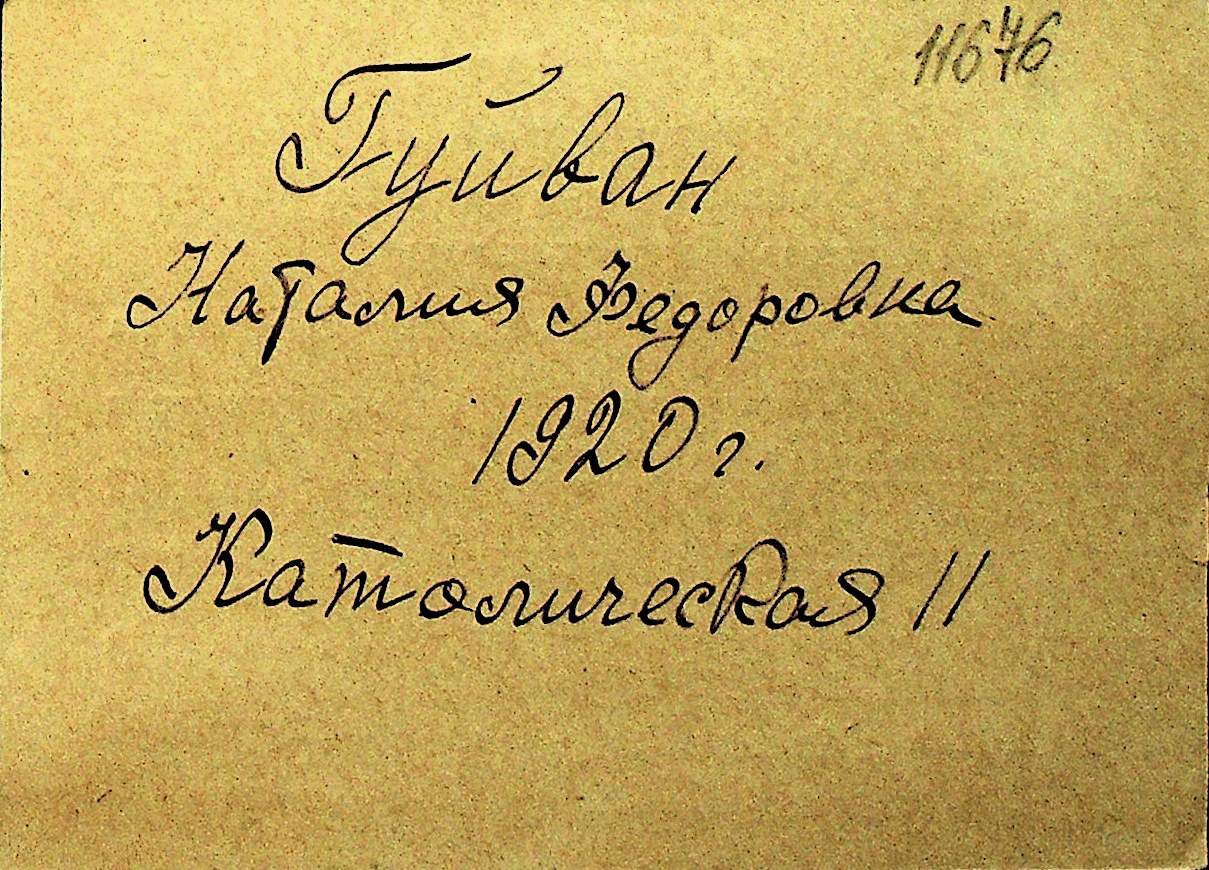 11676
Гуйван
Наталия Федоровна
1920 г.
Католическая 11